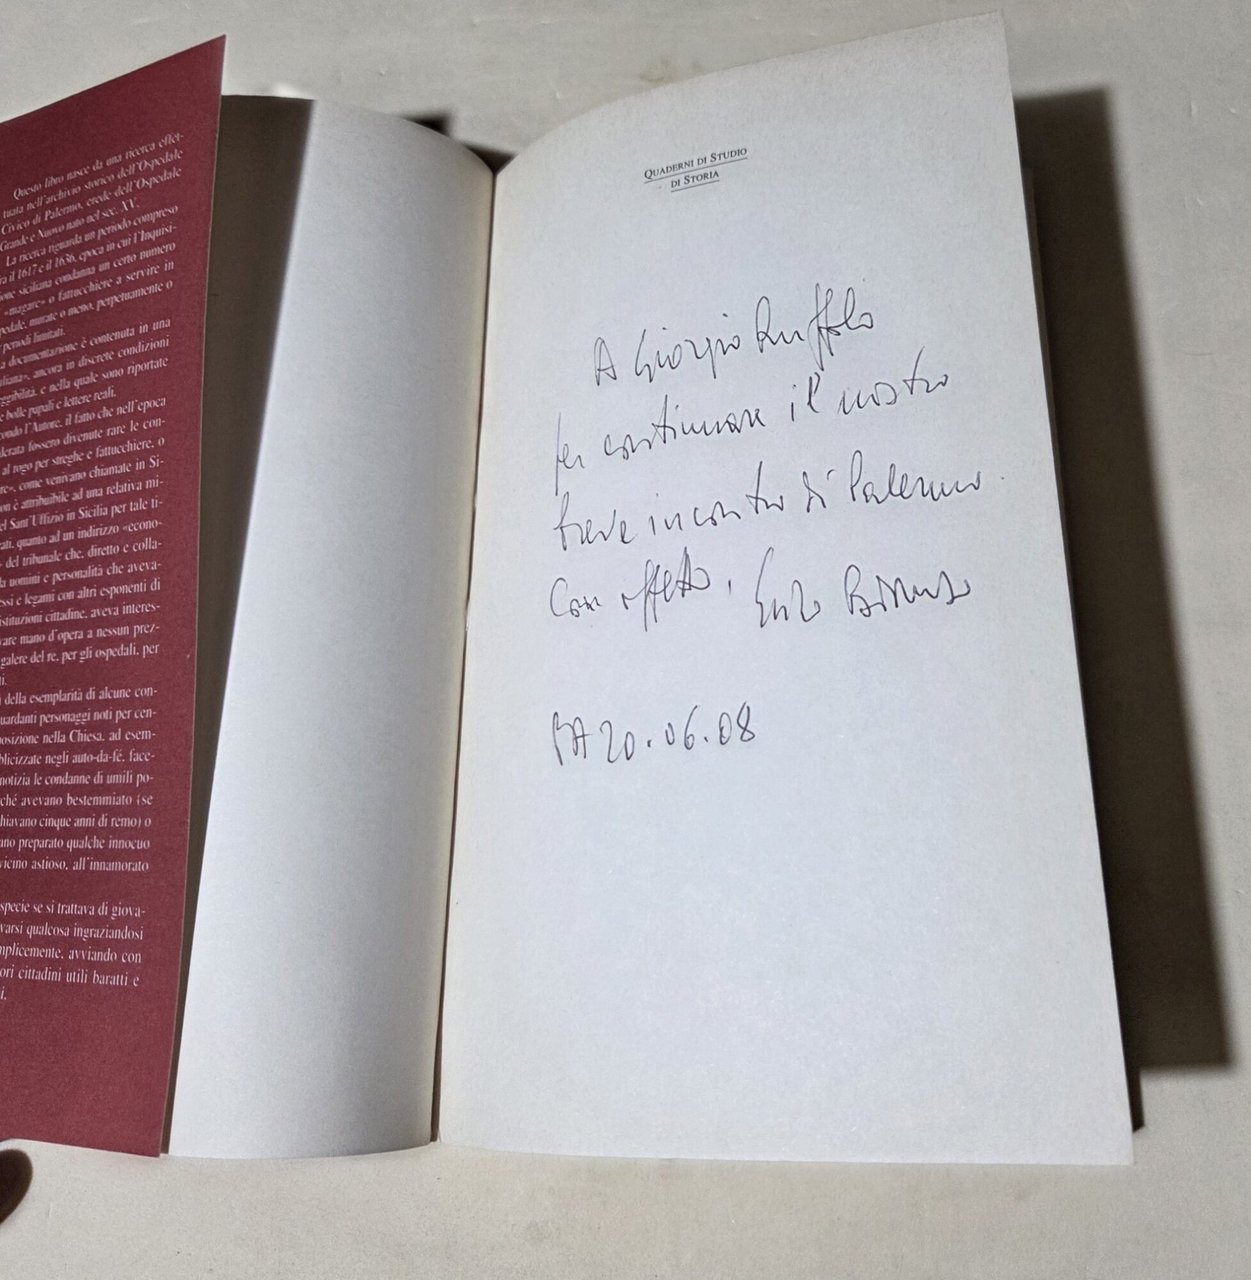 Questo libro nasce da una ricerca effet-
tuata nell'archivio storico dell'Ospedale
Civico di Palermo, erede dell'Ospedale
Grande e Nuovo nato nel sec. XV.
La ricerca riguarda un periodo compreso
ra il 1617 e il 1636, epoca in cui l'Inquisi-
ione siciliana condanna un certo numero
«magare» o fattucchiere a servire in
pedale, murate o meno, perpetuamente o
periodi limitati.
a documentazione è contenuta in una
uliana», ancora in discrete condizioni
ggibilità, e nella quale sono riportate
e bolle papali e lettere reali.
condo l'Autore, il fatto che nell'epoca
derata fossero divenute rare le con-
al rogo per streghe e fattucchiere, o
re», come venivano chiamate in Si-
on è attribuibile ad una relativa mi-
el Sant'Uffizio in Sicilia per tale ti-
ati, quanto ad un indirizzo «econo-
del tribunale che, diretto e colla-
da uomini e personalità che aveva-
essi e legami con altri esponenti di
istituzioni cittadine, aveva interes-
vare mano d'opera a nessun prez-
galere del re, per gli ospedali, per
ti.
della esemplarità di alcune con-
uardanti personaggi noti per cen-
osizione nella Chiesa, ad esem-
blicizzate negli auto-da-fé, face-
notizia le condanne di umili po-
ché avevano bestemmiato (se
chiavano cinque anni di remo) o
ano preparato qualche innocuo
vicino astioso, all'innamorato
specie se si trattava di giova-
varsi qualcosa ingraziandosi
mplicemente, avviando con
ori cittadini utili baratti e
i.
QUADERNI DI STUDIO
DI STORIA
A Giorgio Ruffolo
per continuare il nostro
breve incontro di Palermo.
Con affetto, Enzo
PA 20.06.08